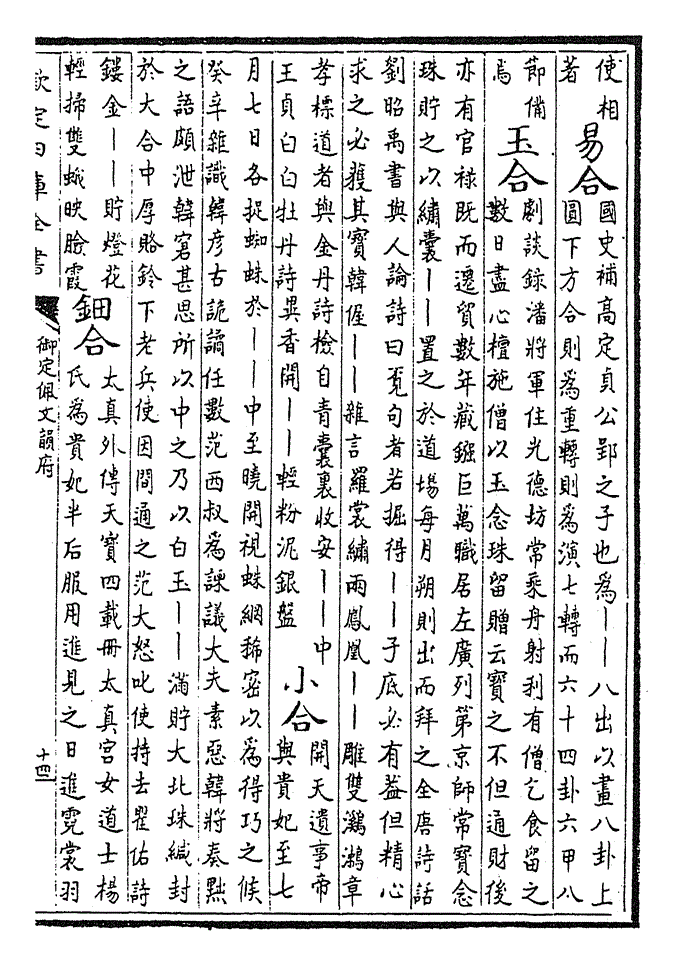 使相
著
易合
國史補高定貞公郢之子也為丨丨八出以畫八卦上
圓下方合則為重轉則為演七轉而六十四卦六甲八
節備
焉
玉合
劇談録潘將軍住光德坊常乘舟射利有僧乞食留之
數日盡心檀施僧以玉念珠留贈云寶之不但通財後
亦有官禄既而遷貿數年藏鏹巨萬職居左廣列第京師常寶念
珠貯之以繡囊丨丨置之於道場每月朔則出而拜之全唐詩話
劉昭禹書與人論詩曰覓句者若掘得丨丨子底必有蓋但精心
求之必獲其寶韓偓丨丨雜言羅裳繡兩鳳凰丨丨雕雙鸂鶒章
孝標道者與金丹詩檢自青囊裏收安丨丨中
王貞白白牡丹詩異香開丨丨輕粉泥銀盤
小合
開天遺事帝
與貴妃至七
月七日各捉蜘蛛於丨丨中至曉開視蛛網稀密以為得巧之候
癸辛雜識韓彦古詭譎任數范西叔為諫議大夫素惡韓將奏黜
之語頗泄韓窘甚思所以中之乃以白玉丨丨滿貯大北珠緘封
於大合中厚賂鈴下老兵使因間通之范大怒叱使持去瞿佑詩
鏤金丨丨貯燈花
輕掃雙蛾映臉霞
鈿合
太真外傳天寶四載冊太真宫女道士楊
氏為貴妃半后服用進見之日進霓裳羽
欽定四庫全書
御定佩文韻府
十四